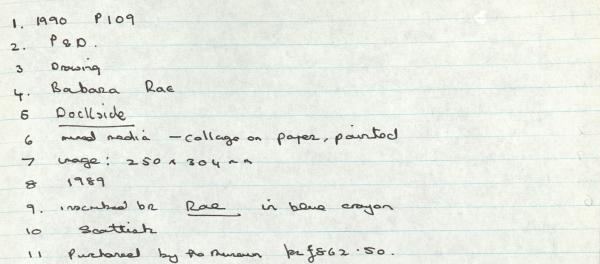 1. 1990 P109
2. P&D.
3 Drawing
4. Babara Rae
5 Dockside
6 mixed media - collage on paper, painted
7 image: 250 x 304 mm
8 1989
9. inscribed br Rae in blue crayon
10 Scottish
11 Purchased by the Museum for £862.50.